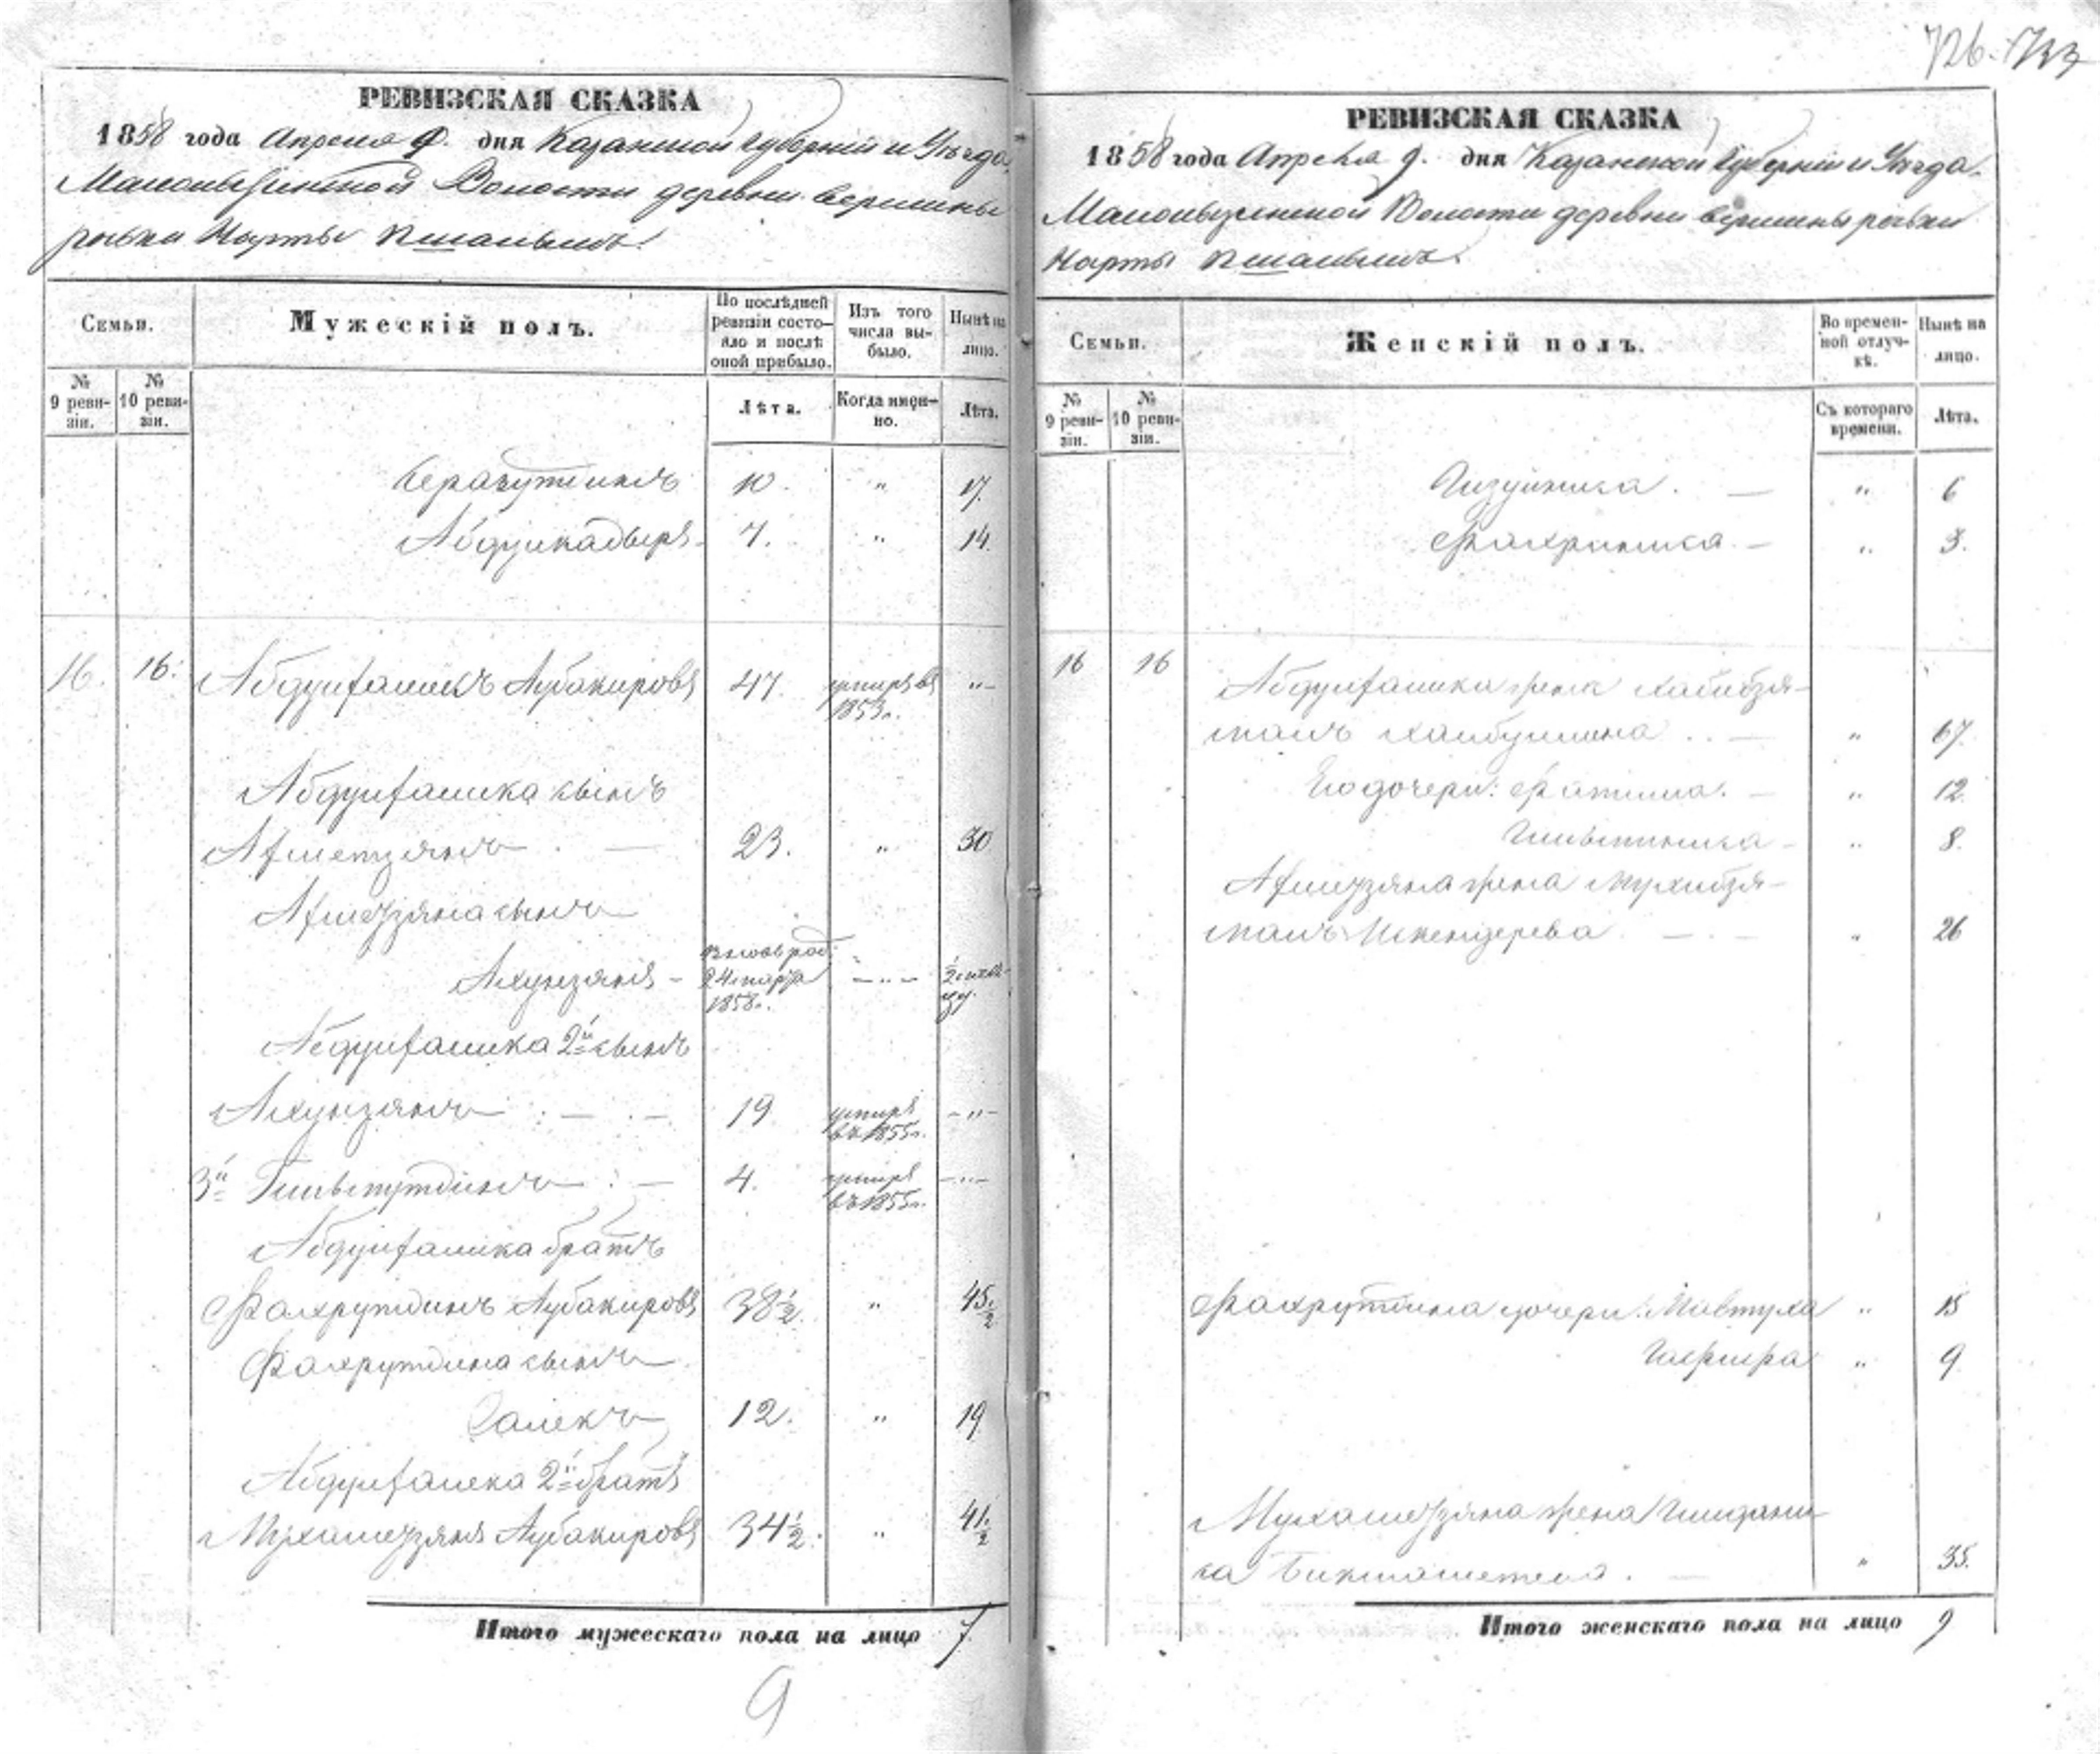 726. 733
РЕВИЗСКАЯ СКАЗКА
1858 года Апреля 9. дня Казанской Губерніи и Уѣзда
Волости деревни вершины
рѣчки Нарты
Семьи.
Мужескій полъ.
По послѣдней ревизіи состояло и послѣ оной прибыло.
Изъ того числа выбыло.
Нынѣ на лицо.
№ 9 ревизіи.
№ 10 ревизіи.
Лѣта.
Когда именно.
Лѣта.
10. " 17.
Абдулкадыръ 7. " 14.
16. 16. Абдулфаликъ Аубакировъ 47. умеръ въ 1853г. "
Абдулфалика сынъ
Ахметзянъ 23. " 30
Ахметзяна сынъ
Ахунзянъ - вновь род. 24 марта 1858г. - " - ½ месяцу.
Абдулфалика 2й сынъ
Ахунзянъ 19 умеръ въ 1855г. - " -
3й 4. умеръ въ 1855г. - " -
Абдулфалика братъ
Фахрутдинъ Аубакировъ 38½. " 45½
Фахрутдина сынъ
Салехъ 12. " 19
Абдулфалека 2й братъ
Мухаметзянъ Аубакировъ 34½. " 41½
Итого мужескаго пола на лицо 7.
9
РЕВИЗСКАЯ СКАЗКА
1858 года Апреля 9. дня Казанской Губерніи и Уѣзда.
Волости деревни вершины рѣчки
Нарты
Семьи.
Женскій полъ.
Во временной отлучкѣ.
Нынѣ на лицо.
№ 9 ревизіи.
№ 10 ревизіи.
Съ котораго времени.
Лѣта.
" 6
" 3.
16 16 Абдулфалика жена Хабибзя-
малъ Хайбуллина " 67.
Его дочери: Фатима. " 12.
" 8.
Ахметзяна жена Мухибзя-
малъ Искендерева " 26
Фахрутдина дочери: Мавтуха " 15
" 9.
Мухаметзяна жена
Бикмаметева. " 35.
Итого женскаго пола на лицо 9